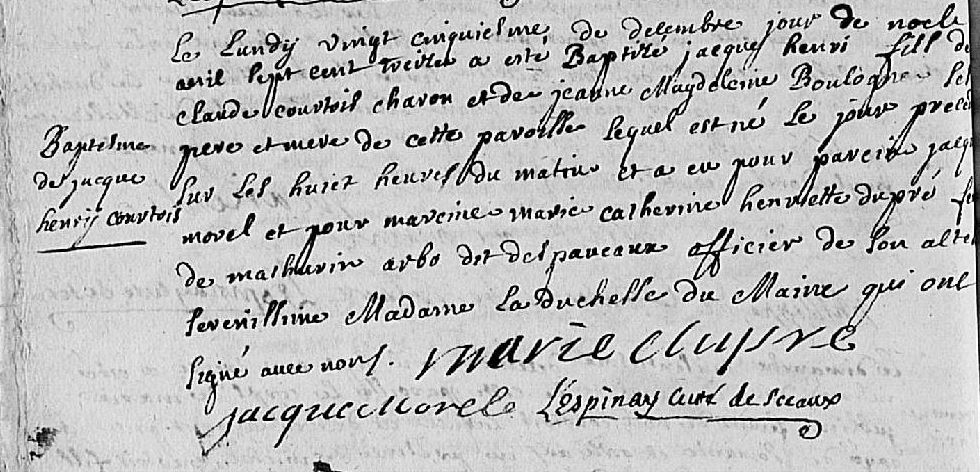 Le Lundy vingt cinquiesme de decembre jour de noel
mil sept cent treize a esté Baptizé jacque henri fill de
claude courtois charon et de jeanne Magdeleine Boulogne ses
Baptesme
de jacque
henry courtois
pere et mere de cette paroisse lequel est né le jour preced
sur les huict heures du matin et a eu pour parein jacqu
morel et pour mareine marie catherine henriette dupré
de mathurin arbo dit despaveaux officier de son alte
serenissime Madame La Duchesse du Maine qui ont
signé avec nous. marie dupre
jacque Morel Lespinay curé de sceaux